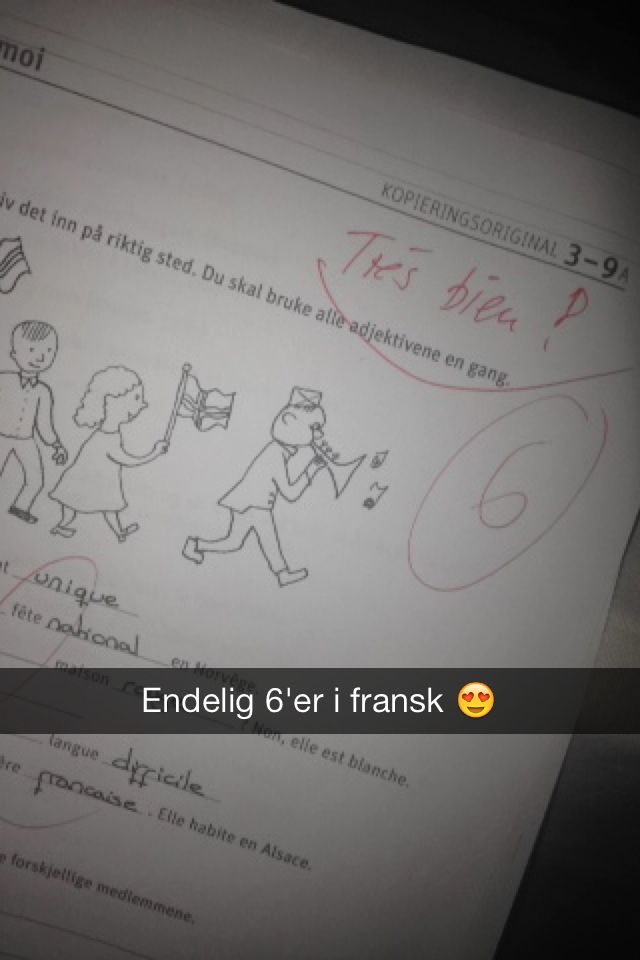 moi
KOPIERINGSORIGINAL 3-9A
iv det inn på riktig sted. Du skal bruke alle adjektivene en gang.
Très bien!
6
unique
fête national en Norvège.
maison ? Non, elle est blanche.
Endelig 6'er i fransk 😍
langue difficile
ère francaise. Elle habite en Alsace.
e forskjellige medlemmene.